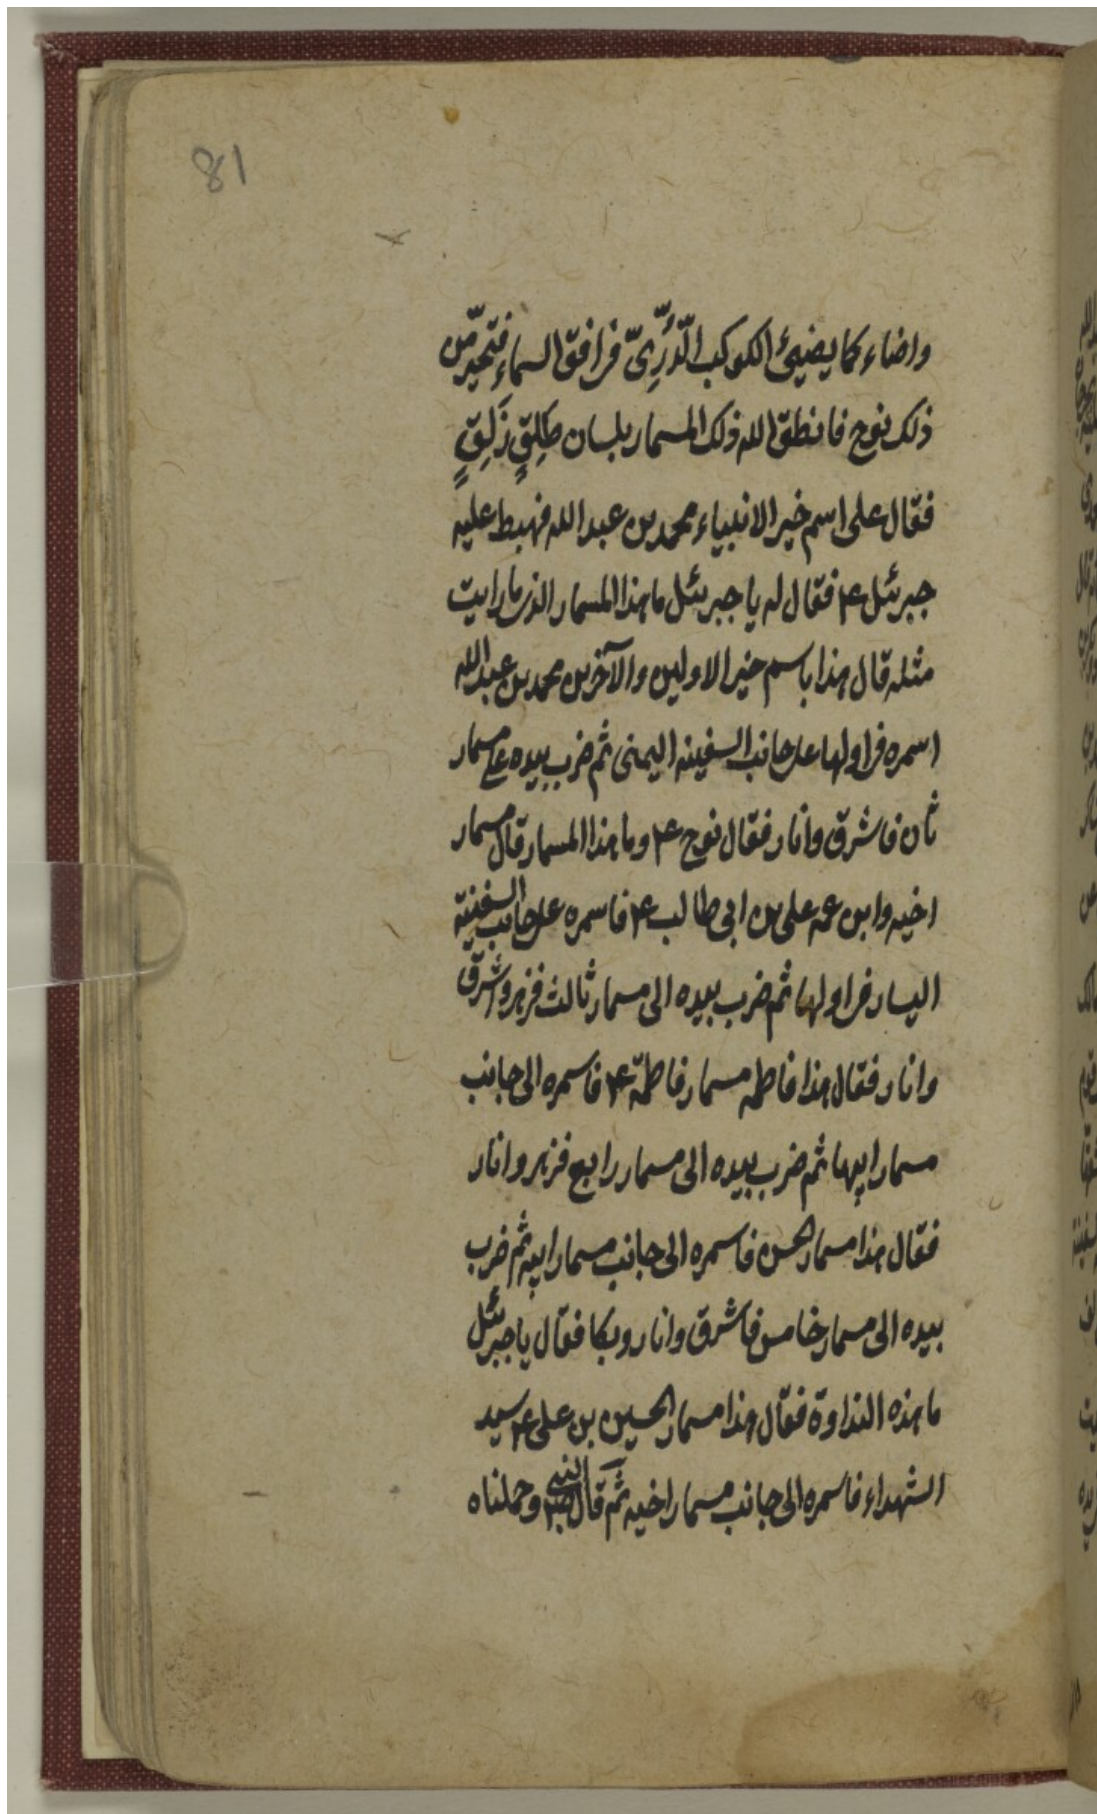 81
واضاء كما يضيئ الكوكب الدُّرِّىّ فى افق السماء فتحيّر من
ذلك نوح فانطق الله ذلك المسمار بلسان طَلِقٍ زَلِقٍ
فقال على اسم خير الانبياء محمد بن عبد الله فهبط عليه
جبرئل ع۴ فقال له يا جبرئل ما هذا المسمار الذى ما رايت
مثله قال هذا باسم خير الاولين والآخرين محمد بن عبد الله
اسمره فى اولها على جانب السفينه اليمنى ثم ضرب بيده على مسمار
ثان فاشرق وانار فقال نوح ع۴ وما هذا المسمار قال مسمار
اخيه وابن عمه على بن ابى طالب ع۴ فاسمره على جانب السفينة
اليسار فى اولها ثم ضرب بيده الى مسمار ثالث فزهر واشرق
وانار فقال هذا فاطمه مسمار فاطمة ع۴ فاسمره الى جانب
مسمار ابيها ثم ضرب بيده الى مسمار رابع فزهر وانار
فقال هذا مسمار الحسن فاسمره الى جانب مسمار ابيه ثم ضرب
بيده الى مسمار خامس فاشرق وانار وبكا فقال يا جبرئل
ما هذه النداوة فقال هذا مسمار الحسين بن على ع۴ سيد
الشهداء فاسمره الى جانب مسمار اخيه ثم قال النبى وحملناه